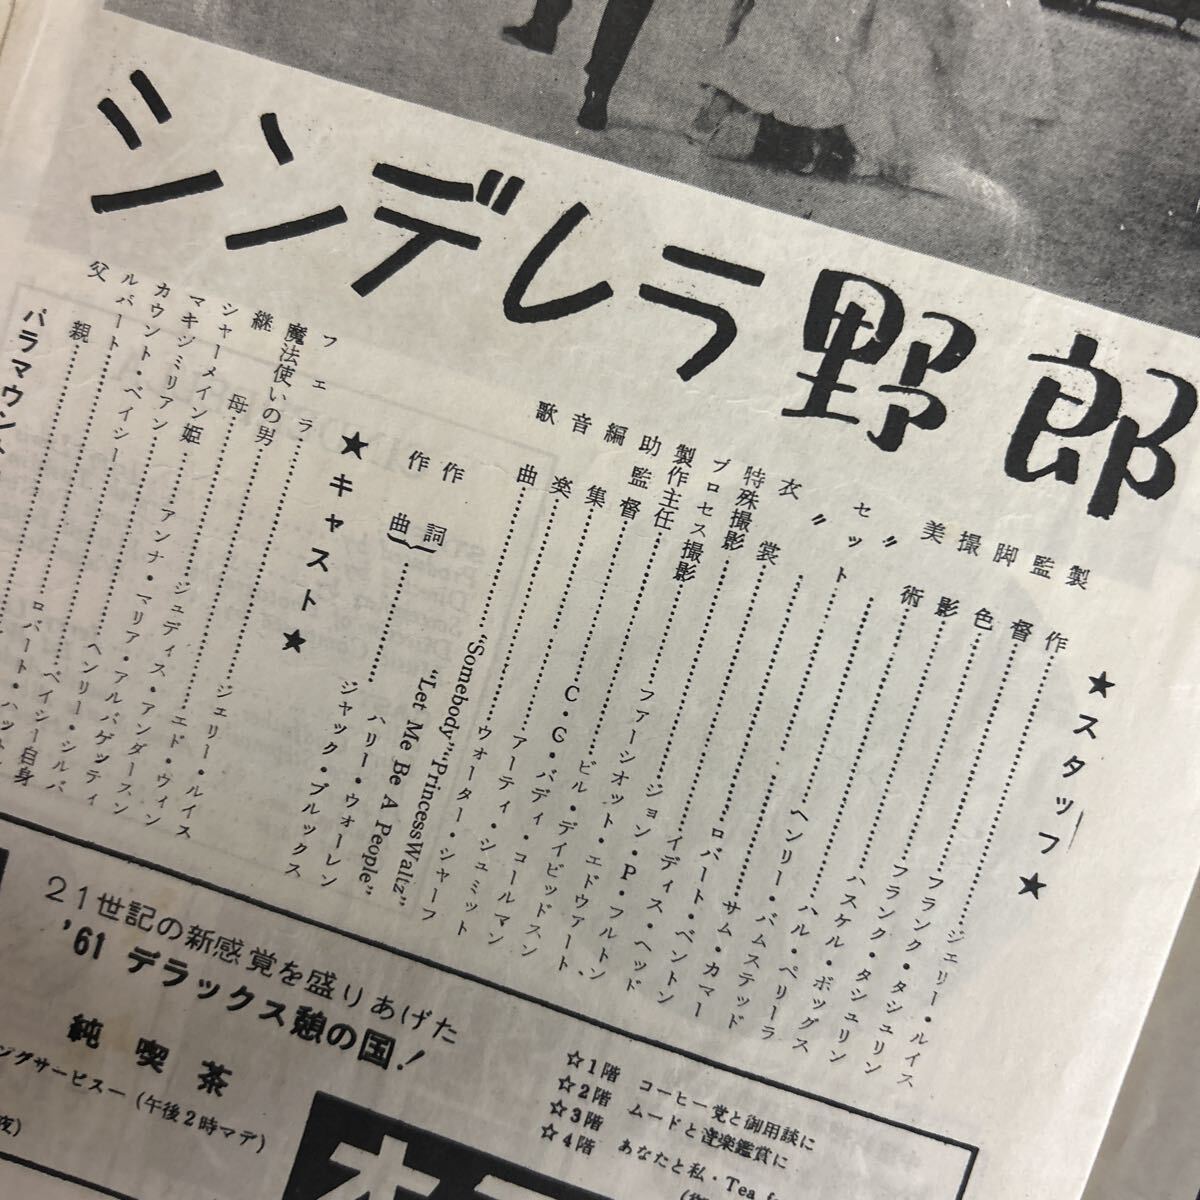 シンデレラ野郎
★スタッフ★
製作…………ジェリー・ルイス
監督…………フランク・タシュリン
脚色…………フランク・タシュリン
撮影…………ハスケル・ボッグス
美術…………ハル・ペリーラ
〃…………ヘンリー・バムステッド
セット…………サム・カマー
〃…………ロバート・ベントン
衣裳…………イディス・ヘッド
特殊撮影…………ジョン・P・フルトン
プロセス撮影…………ファーシオット・エドゥアート
製作主任…………ビル・デイビッドスン
助監督…………C・C・バディ・コールマン
編集…………アーティ・シュミット
音楽…………ウォーター・シャーフ
歌曲…………"Somebody" "Princess Waltz"
"Let Me Be A People"
作詞
作曲…………ハリー・ウォーレン
ジャック・ブルックス
★キャスト★
フェラ…………ジェリー・ルイス
魔法使いの男…………エド・ウィン
継母…………ジュディス・アンダースン
シャーメイン姫…………アンナ・マリア・アルバゲッティ
マキシミリアン…………ヘンリー・シルバ
カウント・ベイシー…………ベイシー自身
ルバート…………ロバート・ハットン
父親
パラマウント
21世紀の新感覚を盛りあげた
'61 デラックス憩の国!
純喫茶
ングサービスー (午後2時マデ)
夜)
☆1階 コーヒー党と御用談に
☆2階 ムードと音楽鑑賞に
☆3階 あなたと私・Tea f
☆4階